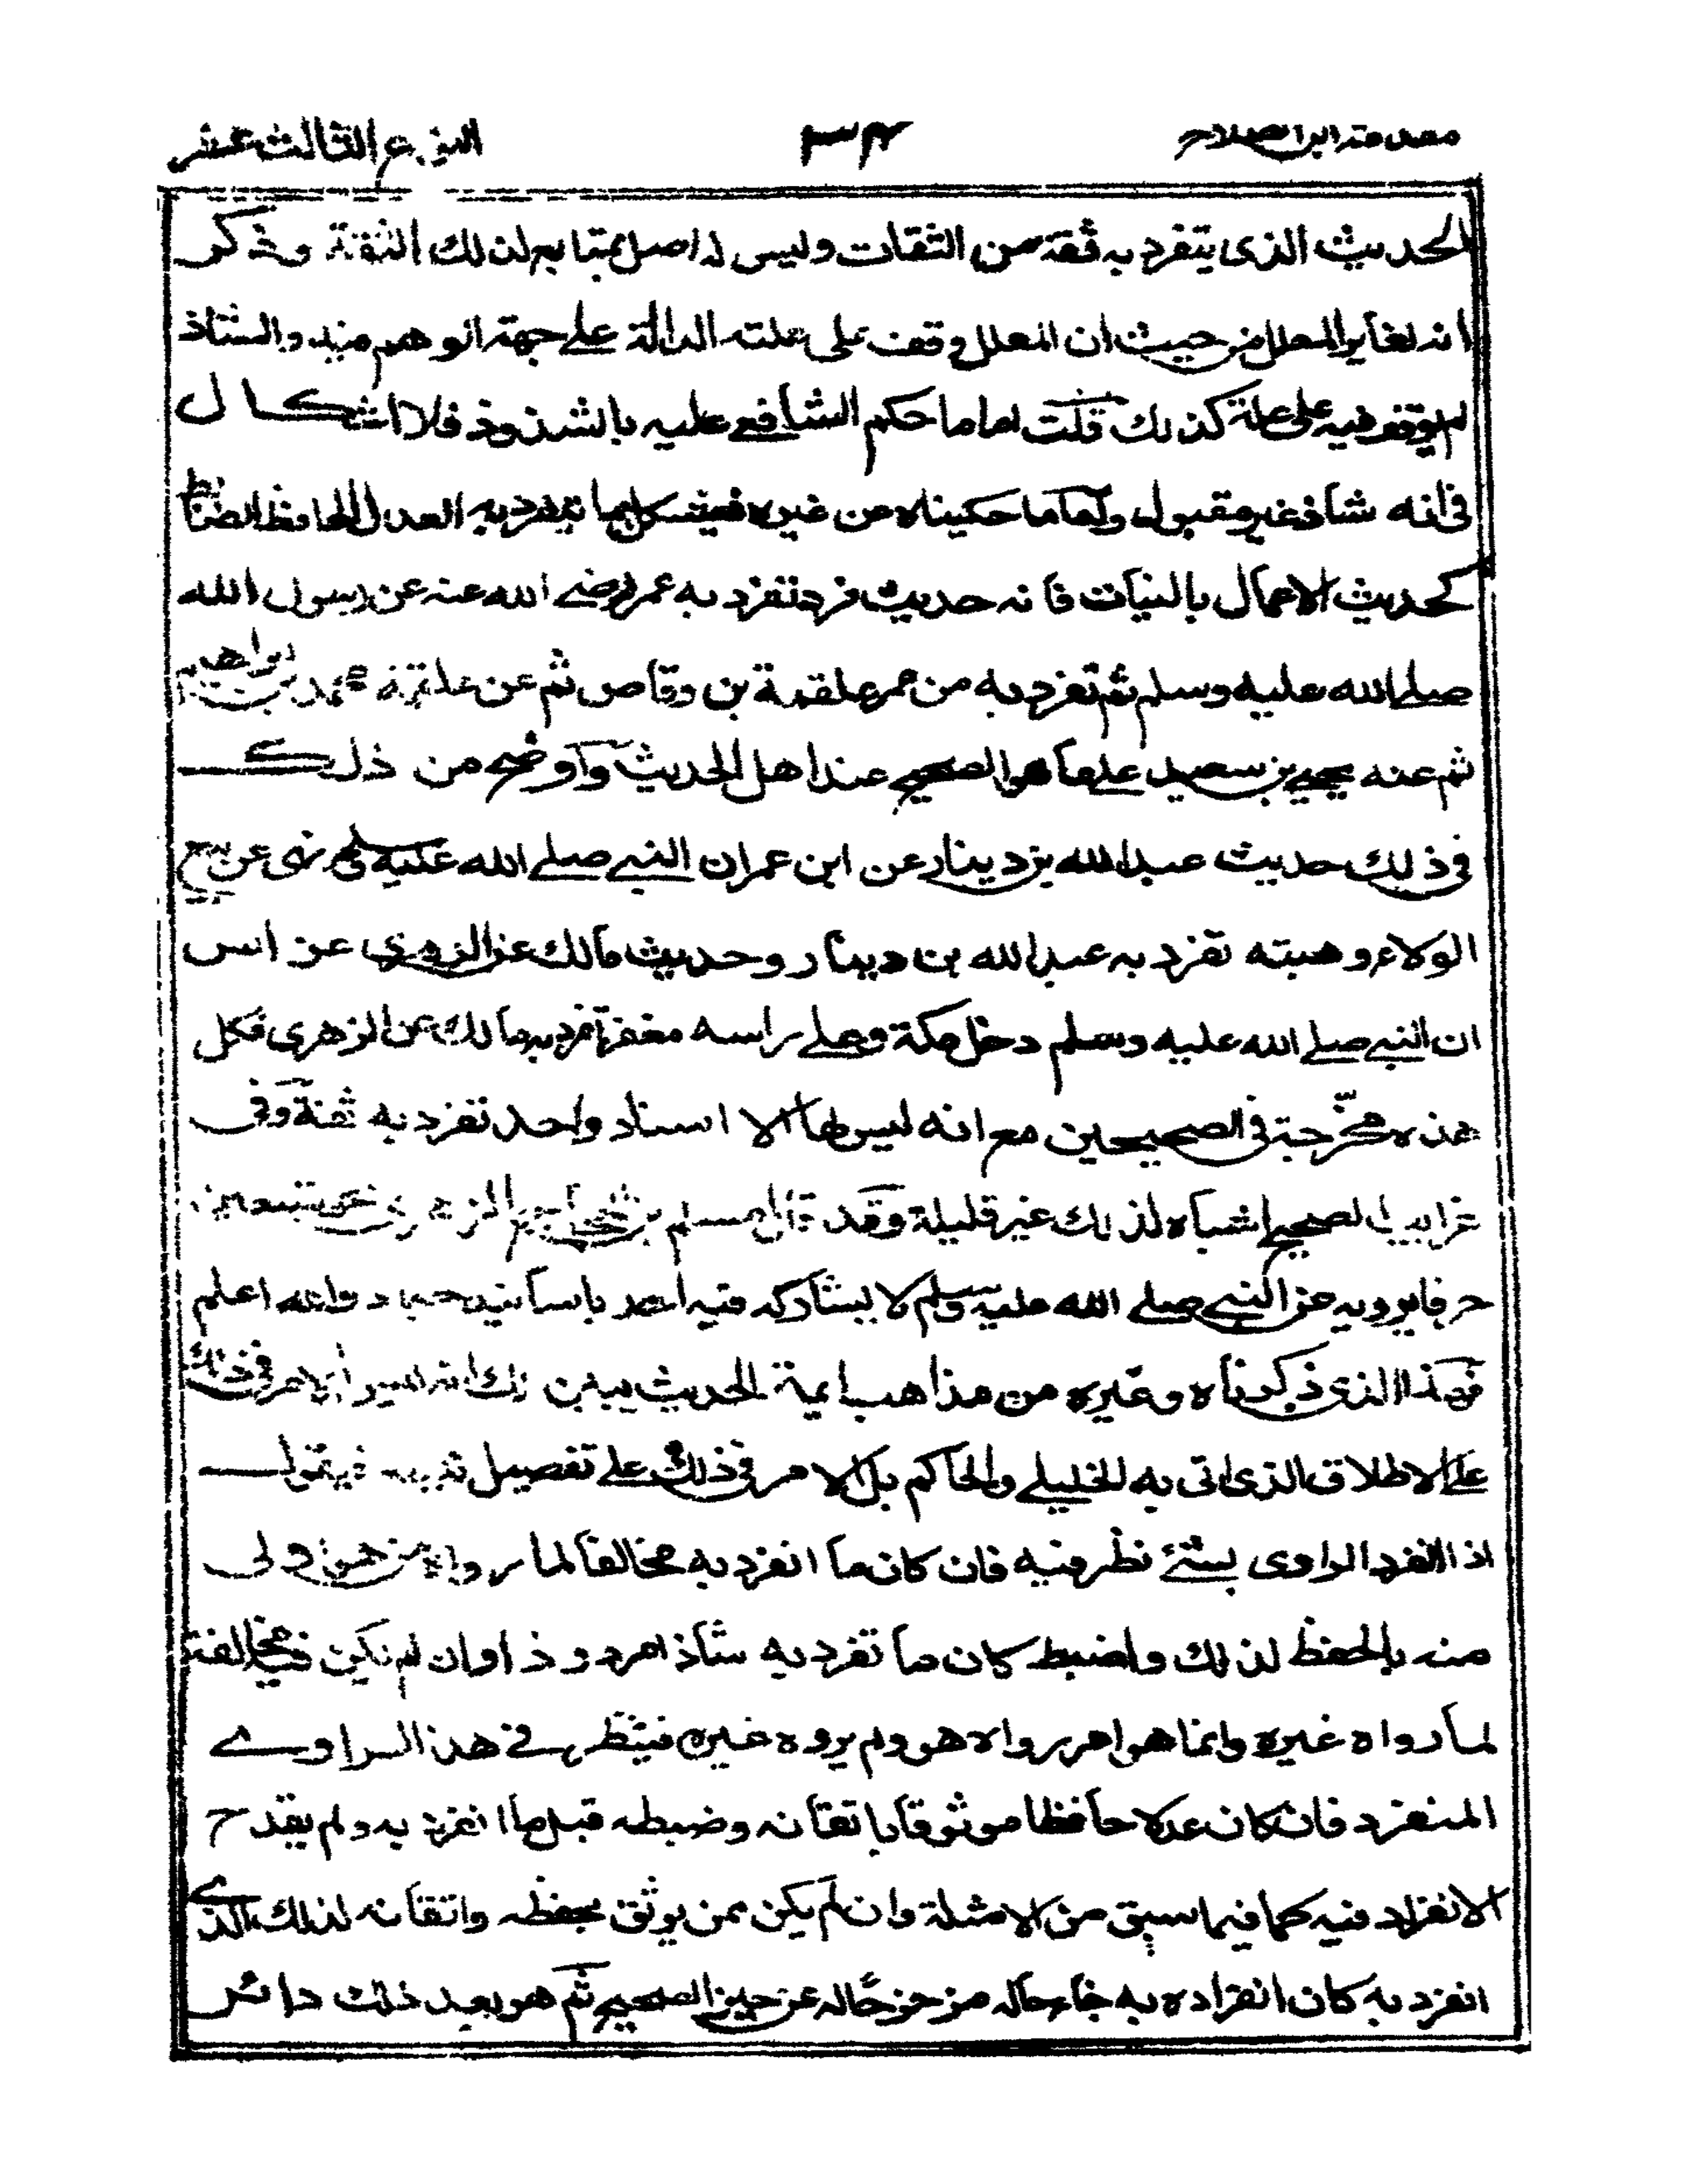 مقدمة ابن الصلاح ٣٤ النوع الثالث عشر
الحديث الذى يتفرد به ثقة من الثقات وليس له اصل بمتابع لذلك الثقة وذكر
انه يغاير المعلل من حيث ان المعلل وقف على علته الدالة على جهة الوهم فيه والشاذ
لم يوقف فيه على علة كذلك قلت اما ما حكم الشافعى عليه بالشذوذ فلا اشكال
فى انه شاذ غير مقبول واما ما حكيناه عن غيره فيشكل بما يتفرد به العدل الحافظ الضابط
كحديث الاعمال بالنيات فانه حديث فرد تفرد به عمر رضى الله عنه عن رسول الله
صلى الله عليه وسلم ثم تفرد به من عمر علقمة بن وقاص ثم عن علقمة محمد بن ابراهيم
ثم عنه يحيى بن سعيد على ما هو الصحيح عند اهل الحديث واوضح من ذلك
فى ذلك حديث عبد الله بن دينار عن ابن عمر ان النبى صلى الله عليه وسلم نهى عن بيع
الولاء وهبته تفرد به عبد الله بن دينار وحديث مالك عن الزهرى عن انس
ان النبى صلى الله عليه وسلم دخل مكة وعلى راسه مغفر تفرد به مالك عن الزهرى فكل
هذه مخرجة فى الصحيحين مع انه ليس لها الا اسناد واحد تفرد به ثقة وفى
غرايب الصحيح اشباه لذلك غير قليلة وقد قال مسلم بن الحجاج للزهرى نحو تسعين
حرفا يرويه عن النبى صلى الله عليه وسلم لا يشاركه فيه احد باسانيد جياد والله اعلم
فهذا الذى ذكرناه وغيره من مذاهب ايمة الحديث يبين لك انه ليس الامر فى ذلك
على الاطلاق الذى اتى به الخليلى والحاكم بل الامر فى ذلك على تفصيل نبينه فيقول
اذا انفرد الراوى بشئ نظر فيه فان كان ما انفرد به مخالفا لما رواه من هو اولى
منه بالحفظ لذلك واضبط كان ما تفرد به شاذا مردودا وان لم تكن فيه مخالفة
لما رواه غيره وانما هو امر رواه هو ولم يروه غيره فينظر فى هذا الراوى
المنفرد فان كان عدلا حافظا موثوقا باتقانه وضبطه قبل ما انفرد به ولم يقدح
الانفراد فيه كما فيما سبق من الامثلة وان لم يكن ممن يوثق بحفظه واتقانه لذلك الذى
انفرد به كان انفراده به خارما له مزحزحا له عن حيز الصحيح ثم هو بعد ذلك دائر